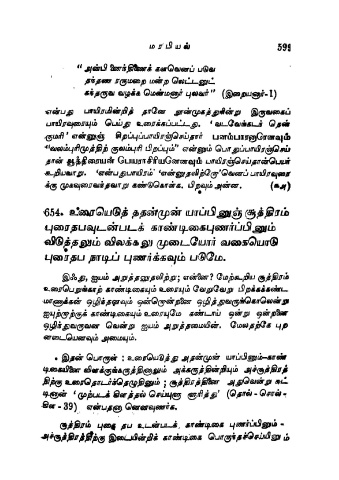 மரபியல் 591
“ அன்பி னைந்திணைக் களவெனப் படுவ
தந்தண ரருமறை மன்ற லெட்டனுட்
கந்தருவ வழக்க மென்மனார் புலவர் ” (இறையனார்-1)
என்பது பாயிரமின்றித் தானே நூன்முகத்துநின்று இருவகைப்
பாயிரவுரையும் பெய்து உரைக்கப்பட்டது, ‘வடவேங்கடந் தென்
குமரி’ என்னுஞ் சிறப்புப்பாயிரஞ்செய்தார் பனம்பாரனாரெனவும்
“வலம்புரிமுத்திற் குலம்புரி பிறப்பும்” என்னும் பொதுப்பாயிரஞ்செய்
தான் ஆத்திரையன் பேராசிரியனெனவும் பாயிரஞ்செய்தான்பெயர்
கூறியவாறு. ‘என்பதுபாயிரம்’ ‘என்னுதலிற்றோ’வெனப் பாயிரவுரை
க்கு முகவுரைவந்தவாறு கண்டுகொள்க. பிறவும் அன்ன. (௧௦)
654. உரையெடுத் ததன்முன் யாப்பினுஞ் சூத்திரம்
புரைதபவுடன்படக் காண்டிகைபுணர்ப்பினும்
விடுத்தலும் விலக்கலு முடையோர் வகையொடு
புரைதப நாடிப் புணர்க்கவும் படுமே.
இஃது, ஐயம் அறுத்தனுதலிற்று; என்னை? மேற்கூறிய சூத்திரம்
உரைபெறுங்காற் காண்டிகையும் உரையும் வேறுவேறு பிறக்கக்கண்ட
மாணாக்கன் ஒழிந்தனவும் ஒன்றொன்றனை ஒழித்துவருங்கொலென்று
ஐயுற்றாற்குக் காண்டிகையும் உரையுமே கண்டாய் ஒன்று ஒன்றனை
ஒழித்துவருவன வென்று ஐயம் அறுத்தமையின். மேலதற்கே புற
னடையெனவும் அமையும்.
இதன் பொருள் : உரையெடுத்து அதன்முன் யாப்பினும்—காண்
டிகையினை விளக்குங்கருத்தினானும் அக்கருத்தின்றியும் அச்சூத்திரத்
திற்கு உரைதொடர்ந்தெழுதினும் ; சூத்திரத்தினை அதுவென்று சுட்
டினான் ‘முற்படக் கிளத்தல் செய்யுளு ளுரித்து’ (தொல்-சொல்-
கிள-39) என்பதனா னெனவுணர்க.
சூத்திரம் புரை தப உடன்படக் காண்டிகை புணர்ப்பினும்—
அச்சூத்திரத்திற்கு இடையின்றிக் காண்டிகை பொருந்தச்செய்யினும்